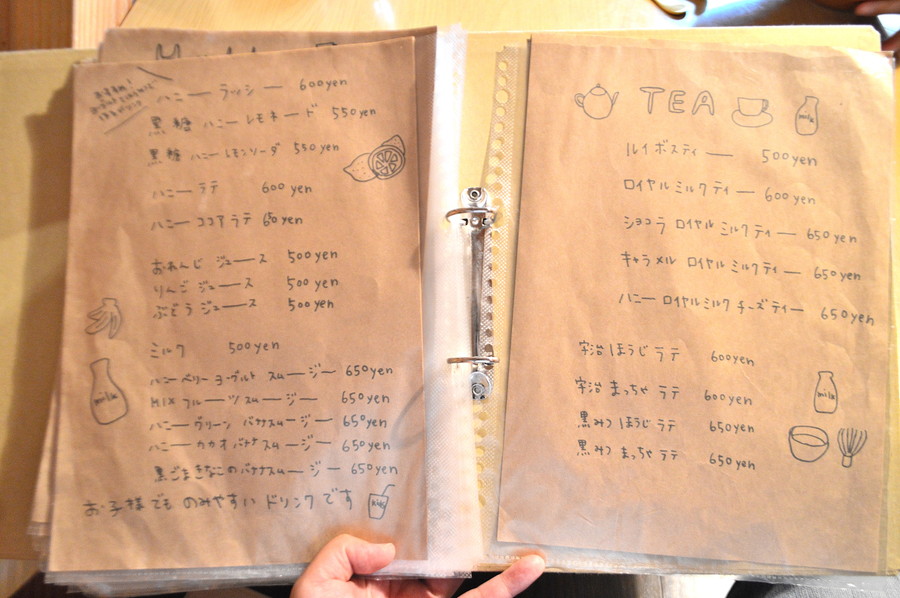 ハニー ラッシー 600yen
黒糖 ハニー レモネード 550yen
黒糖 ハニー レモンソーダ 550yen
ハニー ラテ 600yen
ハニー ココアラテ 650yen
おれんじ ジュース 500yen
りんご ジュース 500yen
ぶどう ジュース 500yen
ミルク 500yen
ハニーベリー ヨーグルト スムージー 650yen
MIX フルーツスムージー 650yen
ハニー グリーン バナナスムージー 650yen
ハニー カカオ バナナスムージー 650yen
黒ごまきなこのバナナスムージー 650yen
お子様でも のみやすい ドリンクです
milk
TEA
milk
ルイボスティー 500yen
ロイヤルミルクティー 600yen
ショコラ ロイヤルミルクティー 650yen
キャラメル ロイヤルミルクティー 650yen
ハニー ロイヤルミルク チーズティー 650yen
宇治 ほうじ ラテ 600yen
宇治 まっちゃ ラテ 600yen
黒みつ ほうじ ラテ 650yen
黒みつ まっちゃ ラテ 650yen
milk